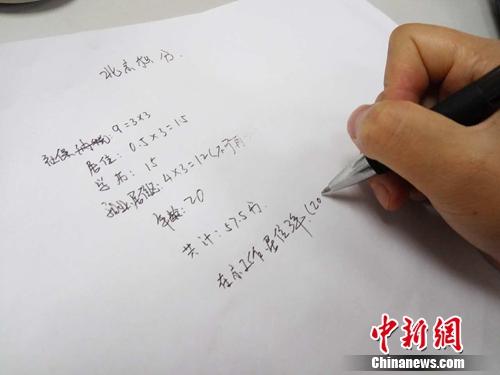 北京积分
社保纳税: 9=3×3
居住: 0.5×3=1.5
学历: 15
就业居住: 4×3=12(
年龄: 20
共计: 57.5分
在京工作居住3年(20
中新网
Chinanews.com